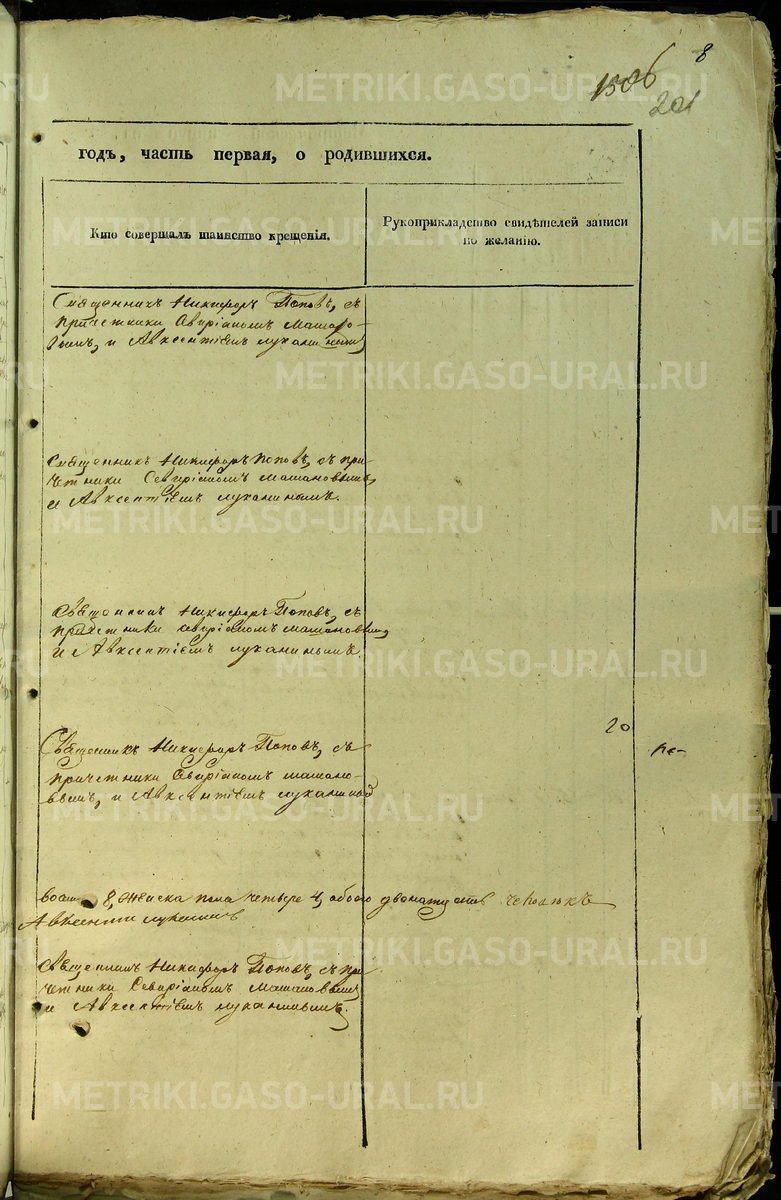 8
1506
201
годъ, часть первая, о родившихся.
Кто совершалъ таинство крещенія.
Рукоприкладство свидѣтелей записи
по желанію.
Священникъ Никифоръ Поповъ, съ
причетники Севиріаномъ Машано-
вымъ, и Авксентіемъ Луканинымъ
Священникъ Никифоръ Поповъ, съ при-
четники Севиріаномъ Машановымъ,
и Авксентіемъ Луканинымъ.
Священникъ Никифоръ Поповъ, съ
причетники Севиріаномъ Машановымъ,
и Авксентіемъ Луканинымъ.
20
Священникъ Никифоръ Поповъ, съ
причетники Севиріаномъ Машано-
вымъ, и Авксентіемъ Луканинымъ
8, женска пола четыре 4, обоего человѣкъ
Авксентій Луканинъ
Священникъ Никифоръ Поповъ, съ при-
четники Севиріаномъ Машановымъ
и Авксентіемъ Луканинымъ.
METRIKI.GASO-URAL.RU